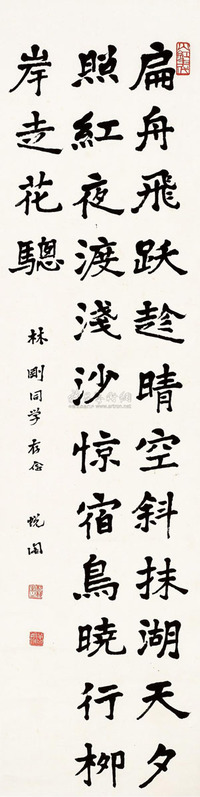 扁舟飛跃趁晴空斜抹湖天夕
照紅夜渡淺沙惊宿鳥曉行柳
岸走花驄
林剛同学存念 悦陶